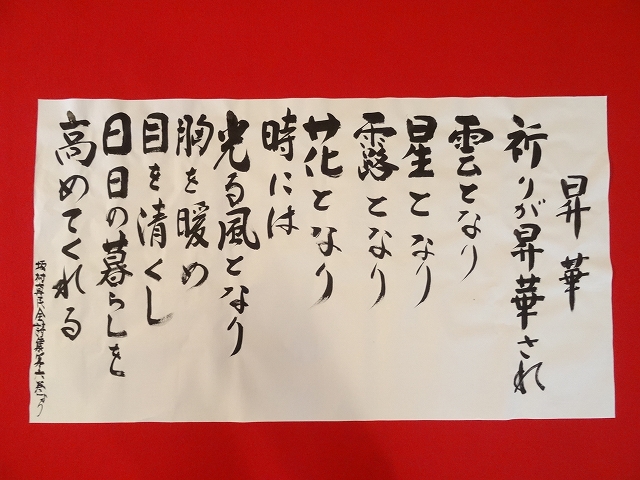 昇華
祈りが昇華され
雲となり
星となり
露となり
花となり
時には
光る風となり
胸を暖め
目を清くし
日日の暮らしを
高めてくれる
坂村真民全詩集第六巻より